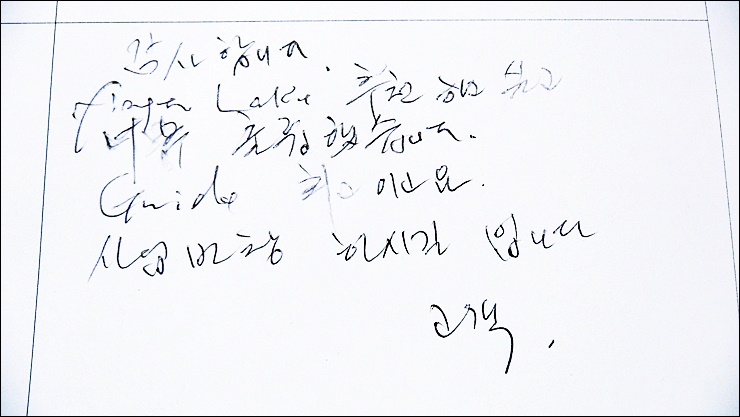 감사합니다.
Finger Lake 추천 해
너무 훌륭했습니다.
Guide 최고 이고요.
사업 번창 하시길 빕니다
고객.